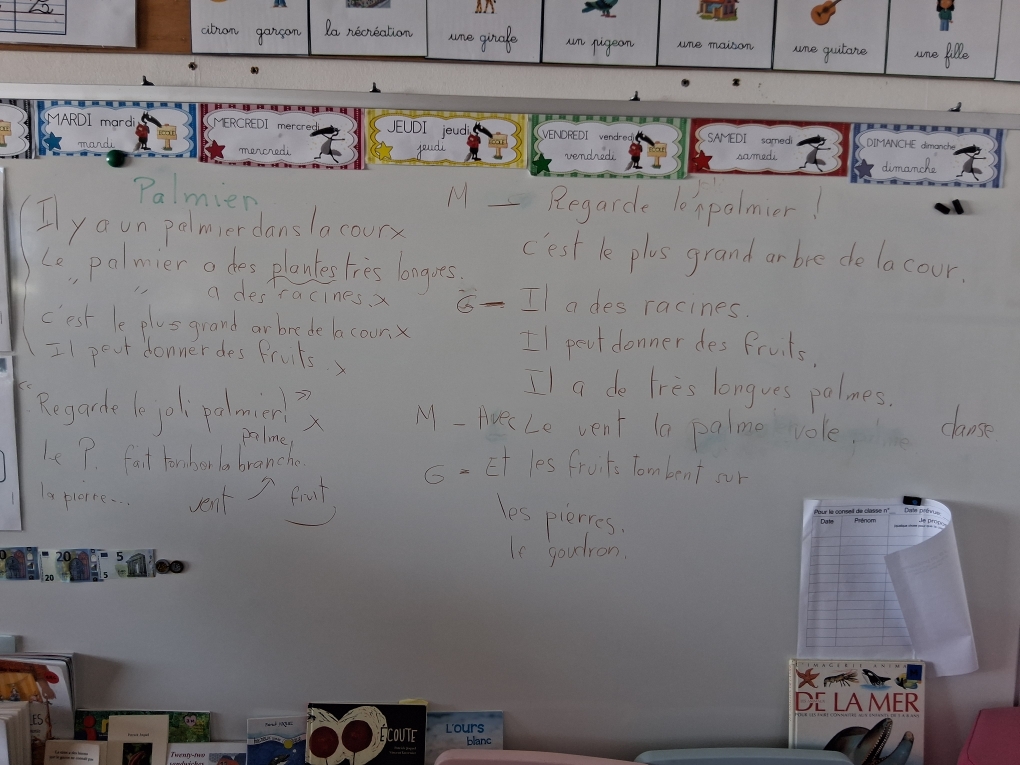 citron garçon
la récréation
une girafe
un pigeon
une maison
une guitare
une fille
MARDI mardi
mardi
MERCREDI mercredi
mercredi
JEUDI jeudi
jeudi
VENDREDI vendredi
vendredi
SAMEDI samedi
samedi
DIMANCHE dimanche
dimanche
ECOLE
ECOLE
ECOLE
Palmier
Il y a un palmier dans la cour x
Le palmier a des plantes très longues.
" " a des racines. x
C'est le plus grand arbre de la cour. x
Il peut donner des fruits. x
"Regarde le joli palmier! » x
palme
le P. fait tomber la branche.
la pierre... vent fruit
M — Regarde le palmier !
C'est le plus grand arbre de la cour.
G — Il a des racines.
Il peut donner des fruits.
Il a de très longues palmes.
M - Avec Le vent la palme vole. danse
G - Et les fruits tombent sur
les pierres.
le goudron.
20
20
5
5
Pour le conseil de classe n° Date prévue
Date Prénom Je propose
L'IMAGERIE ANIMA
DE LA MER
ÉCOUTE
L'ours
blanc
Twenty-two